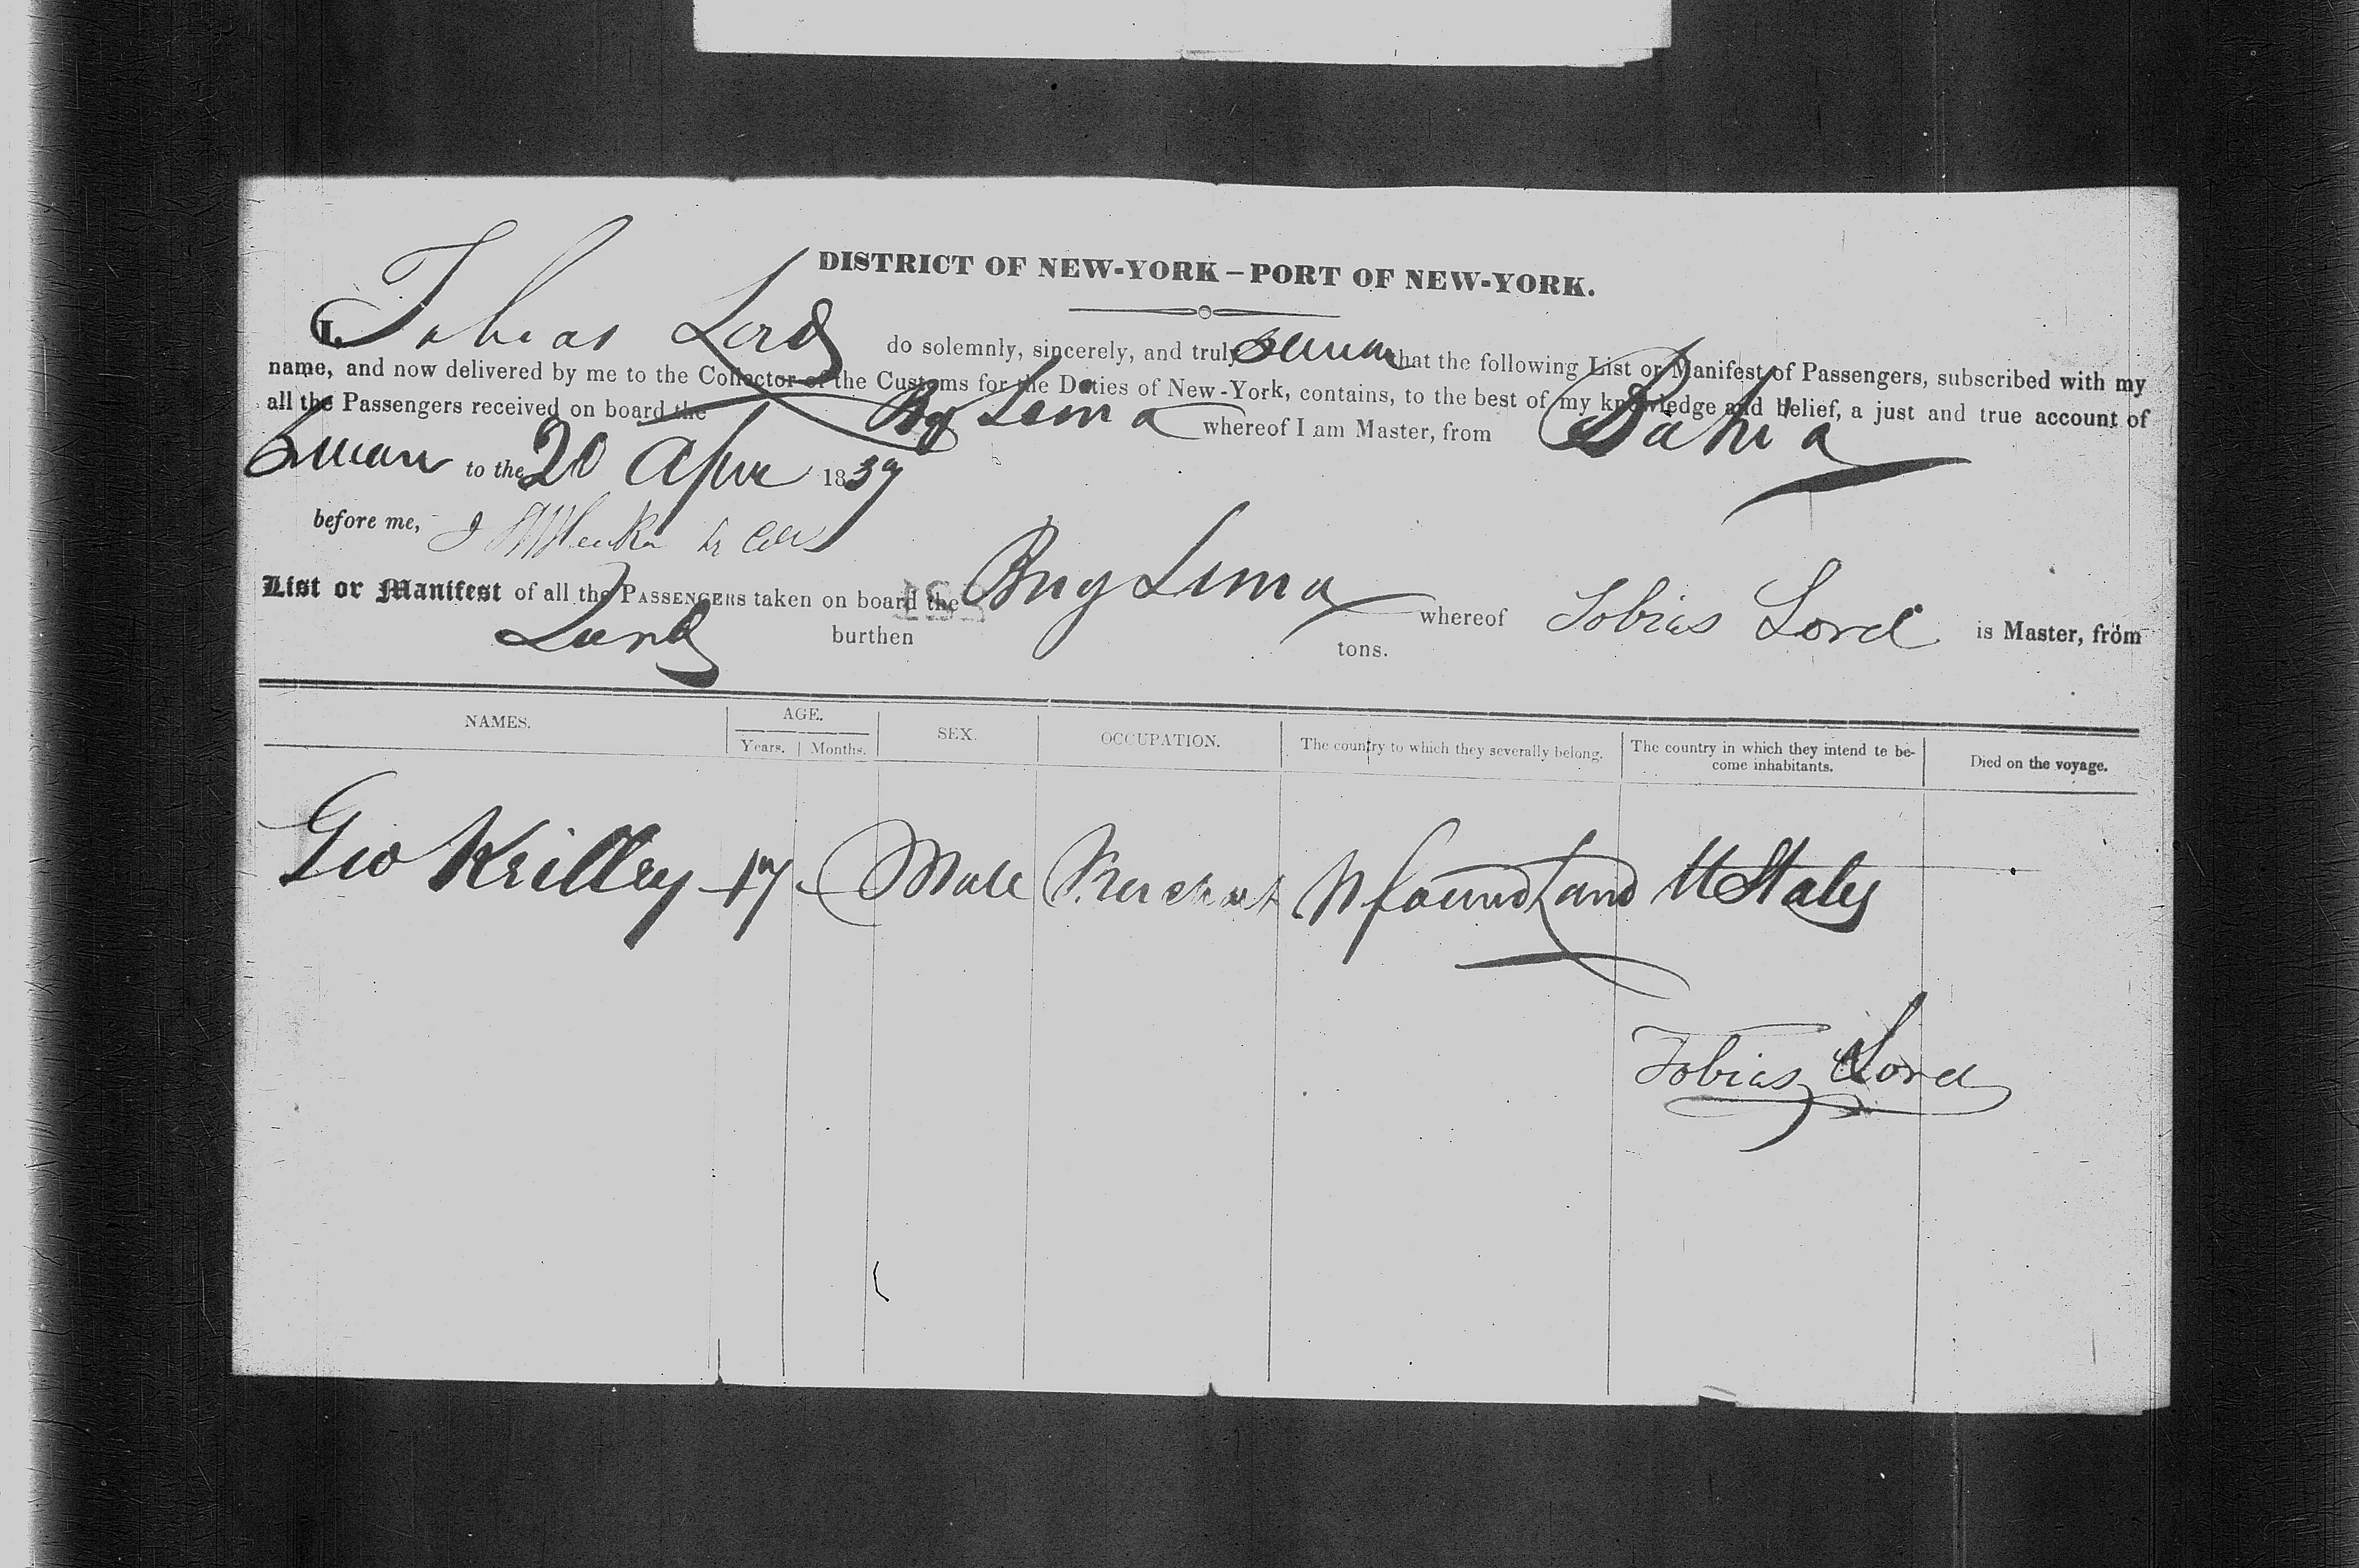 DISTRICT OF NEW-YORK – PORT OF NEW-YORK.
I, Tobias Lord do solemnly, sincerely, and truly swear that the following List or Manifest of Passengers, subscribed with my
name, and now delivered by me to the Collector of the Customs for the Duties of New-York, contains, to the best of my knowledge and belief, a just and true account of
all the Passengers received on board the Brig Lima whereof I am Master, from Bahia
Sworn to the 20 Apr 1837
before me,
List or Manifest of all the PASSENGERS taken on board the Brig Lima whereof Tobias Lord is Master, from
burthen tons.
NAMES. AGE. SEX. OCCUPATION. The country to which they severally belong. The country in which they intend to be-
come inhabitants. Died on the voyage.
Years. Months.
Geo Krilley 17 Male Merchant Nfoundland U States
Tobias Lord